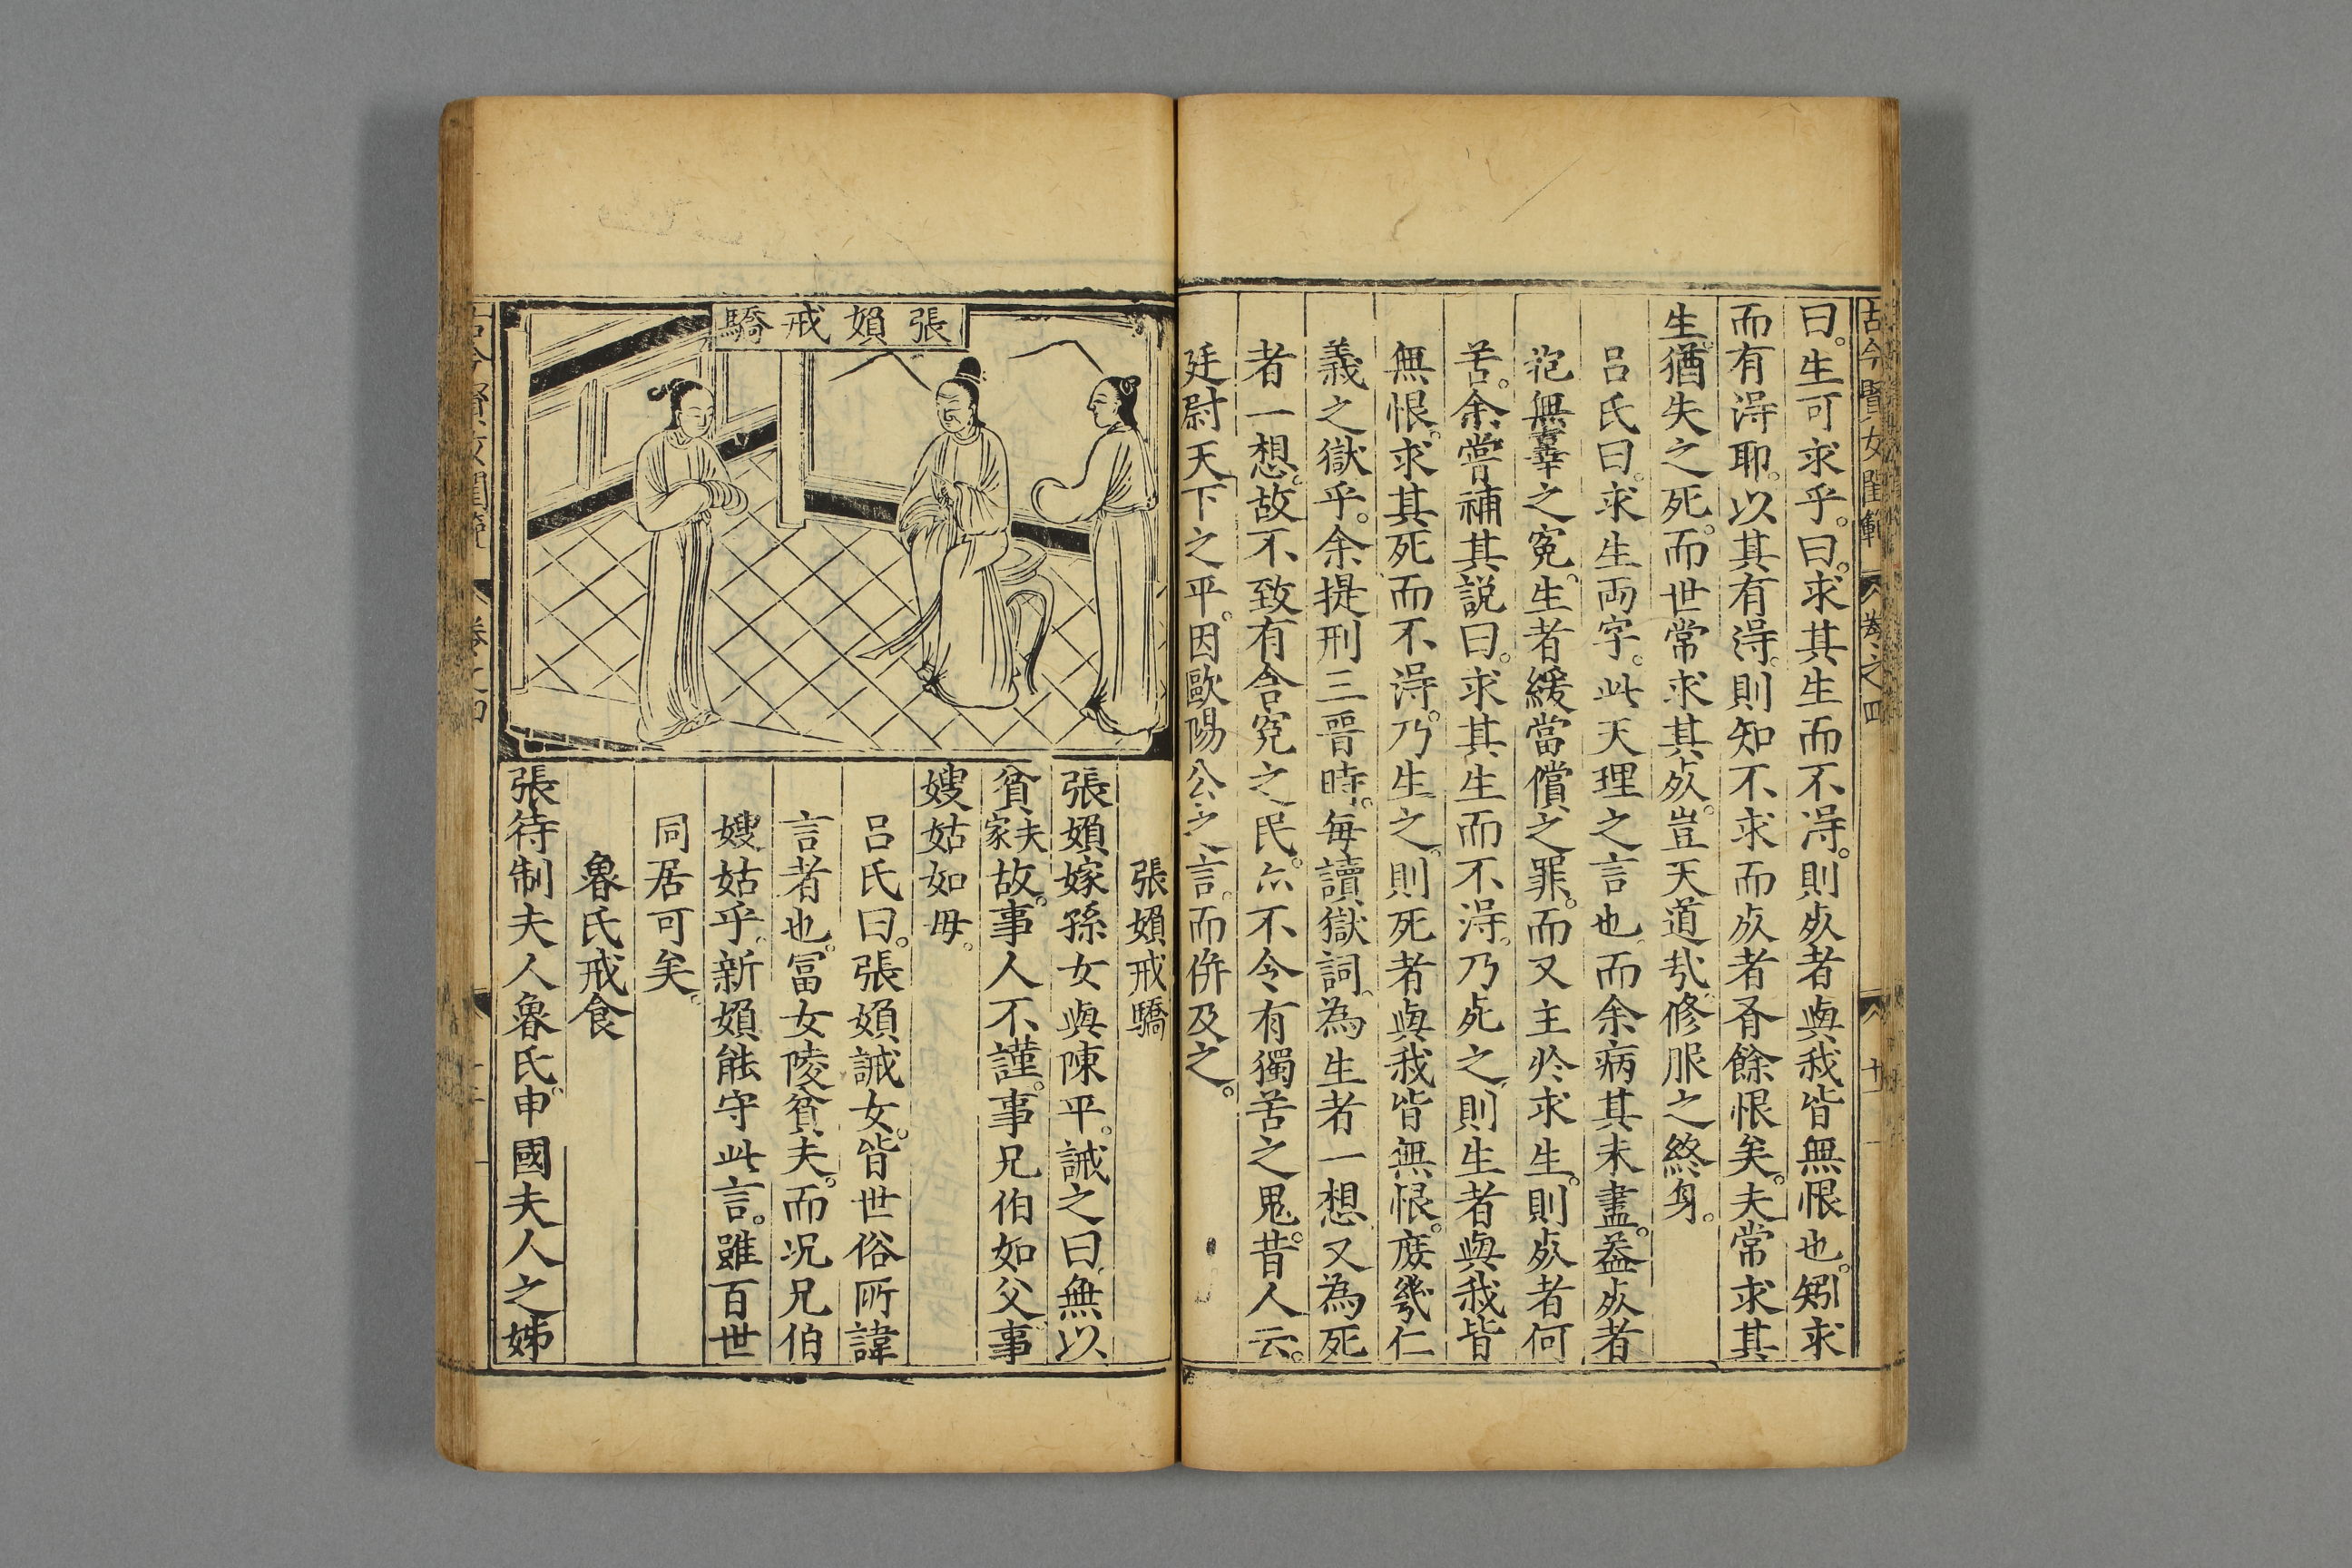 古今賢女閨範 卷之四 十一
曰。生可求乎。曰。求其生而不淂。則㱙者與我皆無恨也。矧求
而有淂耶。以其有淂。則知不求而㱙者有餘恨矣。夫常求其
生。猶失之死。而世常求其㱙。豈天道哉。修服之終身。
呂氏曰。求生両字。此天理之言也。而余病其未盡。葢㱙者
抱無辜之寃。生者緩當償之罪。而又主於求生。則㱙者何
苦。余嘗補其説曰。求其生而不淂。乃死之。則生者與我皆
無恨。求其死而不淂。乃生之。則死者與我皆無恨。庻幾仁
義之獄乎。余提刑三晋時。每讀獄詞。為生者一想。又為死
者一想。故不致有含寃之民。亦不令有獨苦之鬼。昔人云。
廷尉天下之平。因歐陽公之言。而併及之。
張媍戒驕
張媍戒驕
張媍嫁孫女與陳平。誡之曰。無以
貧夫家故。事人不謹。事兄伯如父。事
嫂姑如毋。
呂氏曰。張媍誡女。皆世俗所諱
言者也。冨女陵貧夫。而况兄伯
嫂姑乎。新媍能守此言。雖百世
同居可矣。
魯氏戒食
張待制夫人魯氏。申國夫人之姊